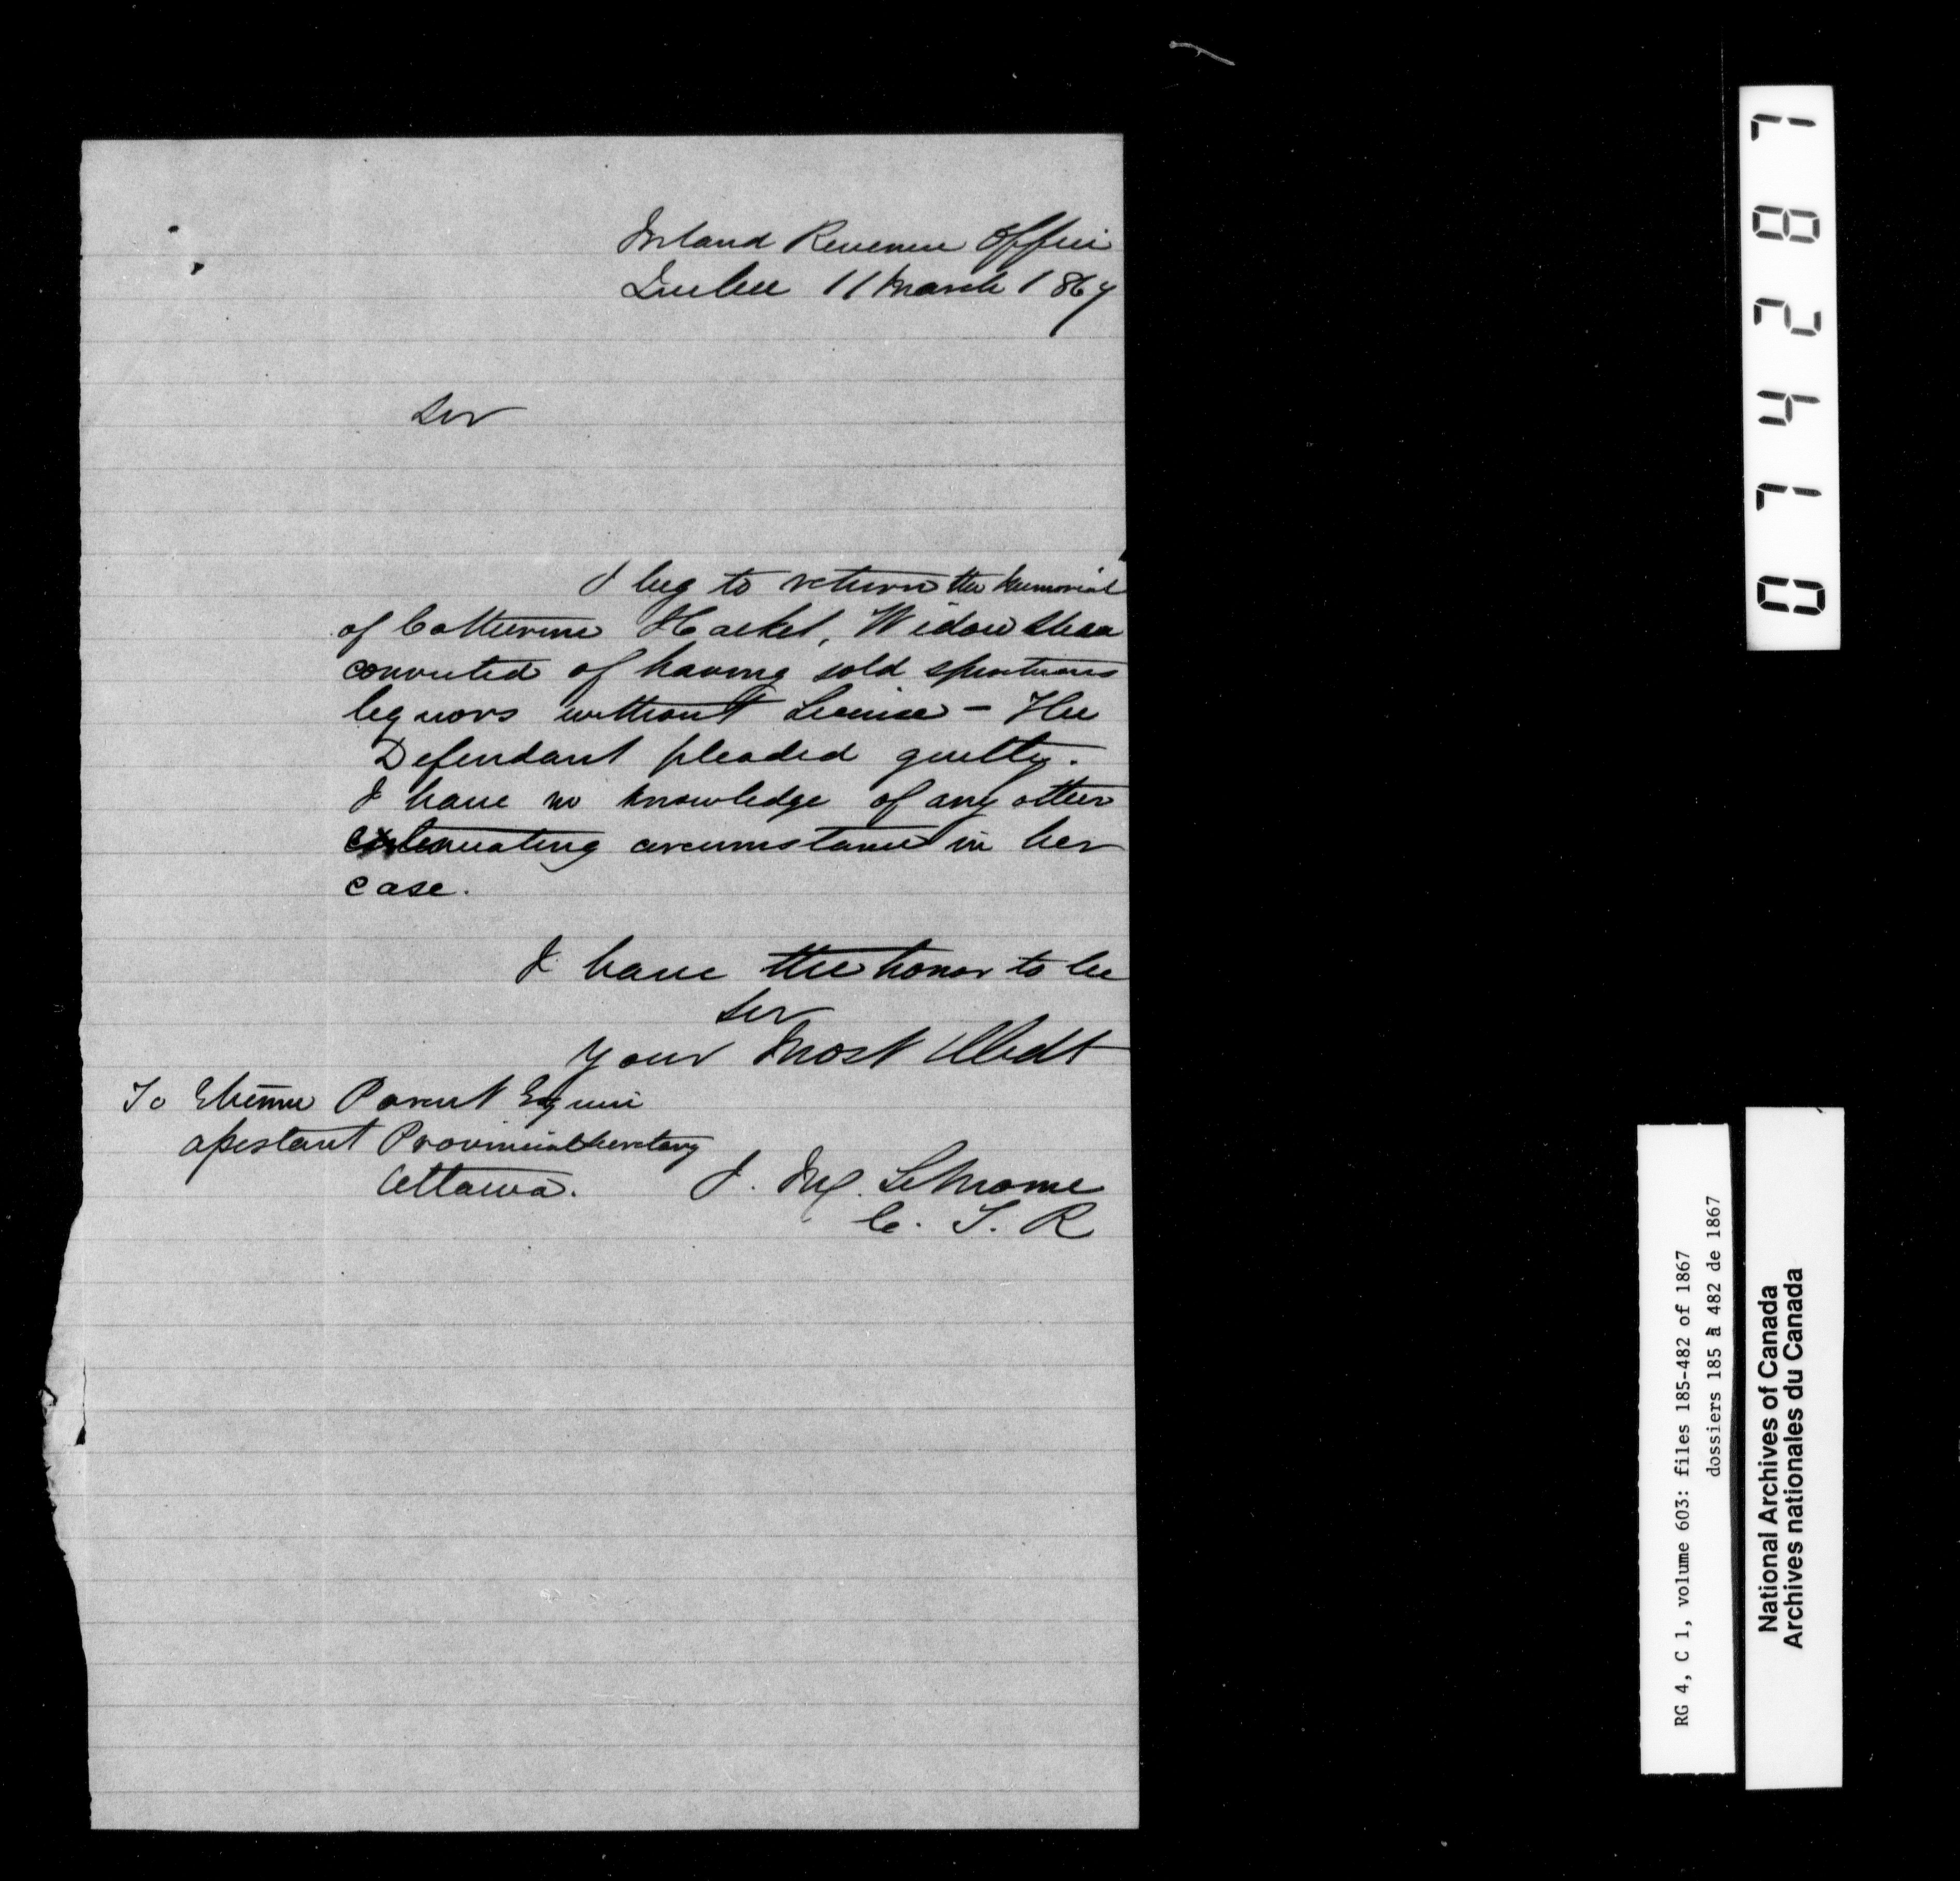 Inland Revenue Office
Quebec 11 March 1867
Sir
I beg to return the Memorial
of Catherine Hacket, Widow Shea
convicted of having sold spirituous
liquors without License - The
Defendant pleaded guilty.
I have no knowledge of any other
extenuating circumstance in her
case.
I have the honor to be
Sir
Your Most Obdt
To Etienne Parent Esquire
assistant Provincial Secretary
Ottawa.
J. M. LeMoine
C. I. R
074287
RG 4, C 1, volume 603: files 185-482 of 1867
dossiers 185 à 482 de 1867
National Archives of Canada
Archives nationales du Canada